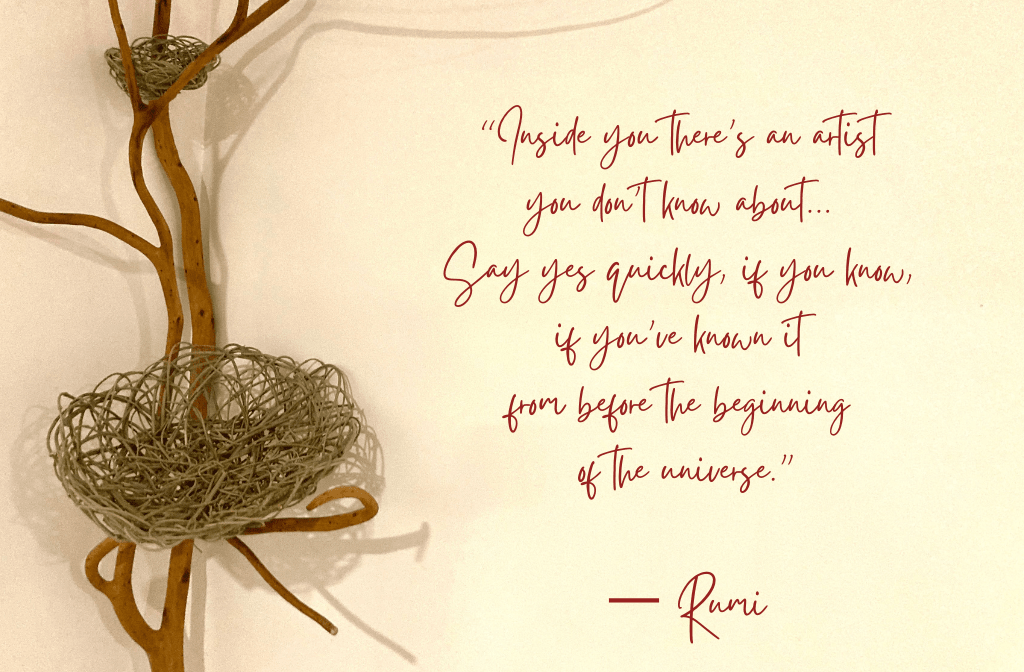 “Inside you there’s an artist
you don’t know about...
Say yes quickly, if you know,
if you’ve known it
from before the beginning
of the universe.”
— Rumi